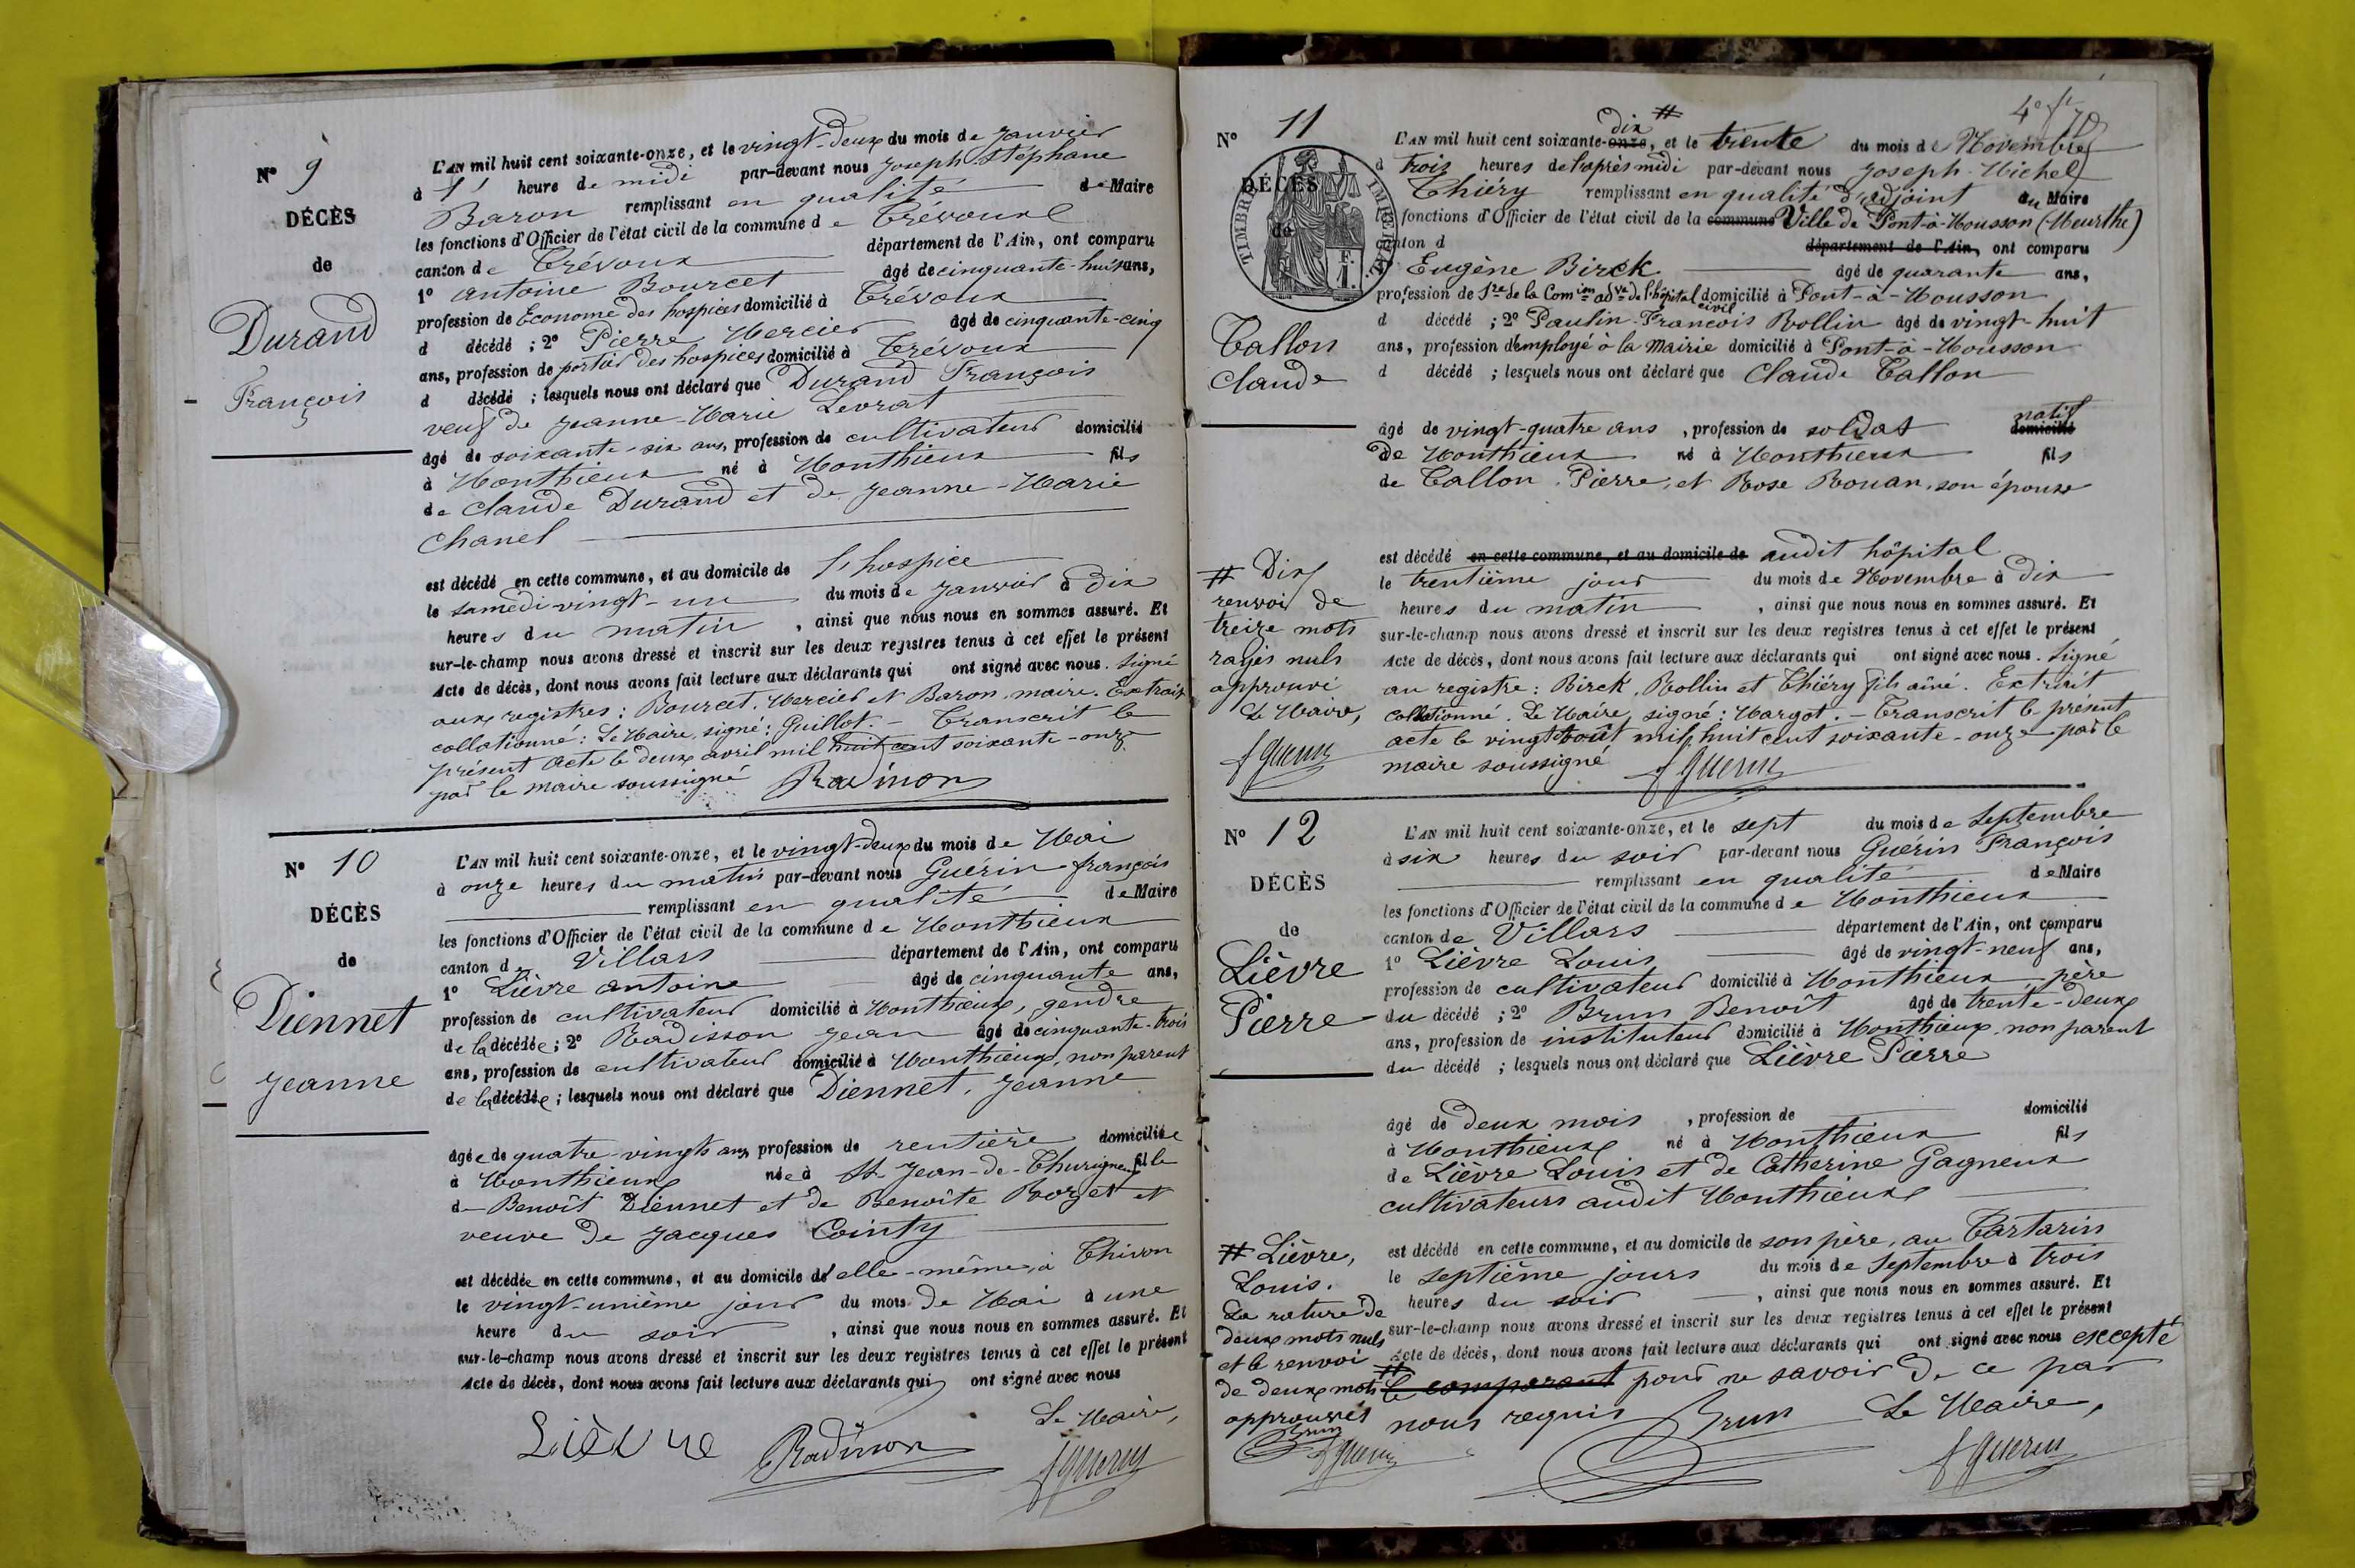 N° 9
DÉCÈS
de
Durand
François
L'AN mil huit cent soixante-onze, et le vingt-deux du mois de Janvier
à 1 heure de midi par-devant nous Joseph Stéphane
Baron remplissant en qualité de Maire
les fonctions d'Officier de l'état civil de la commune de Trévoux
canton de Trévoux département de l'Ain, ont comparu
1° Antoine Bourcet âgé de cinquante-huit ans,
profession de Econome des hospices domicilié à Trévoux
d décédé ; 2° Pierre Mercier âgé de cinquante-cinq
ans, profession de portier des hospices domicilié à Trévoux
d décédé ; lesquels nous ont déclaré que Durand François
veuf de Jeanne-Marie Levrat
âgé de soixante-six ans, profession de cultivateur domicilié
à Monthieux né à Monthieux fils
de Claude Durand et de Jeanne-Marie
Chanel
est décédé en cette commune, et au domicile de l'hospice
le samedi vingt-un du mois de Janvier à dix
heures du matin, ainsi que nous nous en sommes assuré. Et
sur-le-champ nous avons dressé et inscrit sur les deux registres tenus à cet effet le présent
Acte de décès, dont nous avons fait lecture aux déclarants qui ont signé avec nous. Signé
aux registres : Bourcet, Mercier et Baron, maire. Extrait
collationné : Le Maire, signé : Guillot. - Transcrit le
présent acte le deux avril mil huit cent soixante-onze
par le maire soussigné Radisson
N° 10
DÉCÈS
de
Diennet
Jeanne
L'AN mil huit cent soixante-onze, et le vingt-deux du mois de Mai
à onze heures du matin par-devant nous Guérin françois
remplissant en qualité de Maire
les fonctions d'Officier de l'état civil de la commune de Monthieux
canton de Villars département de l'Ain, ont comparu
1° Lièvre antoine âgé de cinquante ans,
profession de cultivateur domicilié à Monthieux, gendre
de la décédée ; 2° Radisson Jean âgé de cinquante-trois
ans, profession de cultivateur domicilié à Monthieux, non parent
de la décédée ; lesquels nous ont déclaré que Diennet, Jeanne
âgée de quatre-vingts ans profession de rentière domiciliée
à Monthieux née à St-Jean-de-Thurigneux fille
de Benoît Diennet et de Benoîte Rozet et
veuve de Jacques Cointy
est décédée en cette commune, et au domicile d'elle-même, à Thivon
le vingt-unième jour du mois de Mai à une
heure du soir, ainsi que nous nous en sommes assuré. Et
sur-le-champ nous avons dressé et inscrit sur les deux registres tenus à cet effet le présent
Acte de décès, dont nous avons fait lecture aux déclarants qui ont signé avec nous
Le Maire,
Lièvre Radisson f Guerin
N° 11
DÉCÈS
de
TIMBRE IMPÉRIAL
Tallon
Claude
dix #
L'AN mil huit cent soixante-onze, et le trente du mois de Novembre
à trois heures de l'après midi par-devant nous Joseph-Michel
Thiéry remplissant en qualité d'adjoint au Maire
les fonctions d'Officier de l'état civil de la commune Ville de Pont-à-Mousson (Meurthe)
canton d département de l'Ain, ont comparu
1° Eugène Birck âgé de quarante ans,
profession de Sre de la Comion adve de l'hôpital civil domicilié à Pont-à-Mousson
d décédé ; 2° Paulin-François Rollin âgé de vingt-huit
ans, profession d'employé à la Mairie domicilié à Pont-à-Mousson
d décédé ; lesquels nous ont déclaré que Claude Tallon
âgé de vingt-quatre ans, profession de soldat natif domicilié
de Monthieux né à Monthieux fils
de Tallon, Pierre, et Rose Rouan, son épouse
est décédé en cette commune, et au domicile de audit hôpital
le trentième jour du mois de Novembre à dix
heures du matin, ainsi que nous nous en sommes assuré. Et
sur-le-champ nous avons dressé et inscrit sur les deux registres tenus à cet effet le présent
Acte de décès, dont nous avons fait lecture aux déclarants qui ont signé avec nous. Signé
au registre : Birck, Rollin et Thiéry fils aîné. Extrait
collationné. Le Maire, signé : Margot. - Transcrit le présent
acte le vingt août mil huit cent soixante-onze par le
maire soussigné f Guerin
# Dix
renvoi de
treize mots
rayés nuls
approuvé
Le Maire,
f Guerin
N° 12
DÉCÈS
de
Lièvre
Pierre
L'AN mil huit cent soixante-onze, et le sept du mois de Septembre
à six heures du soir par-devant nous Guérin François
remplissant en qualité de Maire
les fonctions d'Officier de l'état civil de la commune de Monthieux
canton de Villars département de l'Ain, ont comparu
1° Lièvre Louis âgé de vingt-neuf ans,
profession de cultivateur domicilié à Monthieux père
du décédé ; 2° Brun Benoît âgé de trente-deux
ans, profession de instituteur domicilié à Monthieux, non parent
du décédé ; lesquels nous ont déclaré que Lièvre Pierre
âgé de deux mois, profession de domicilié
à Monthieux né à Monthieux fils
de Lièvre Louis et de Catherine Gagneux
cultivateurs audit Monthieux
est décédé en cette commune, et au domicile de son père, au Tartarin
le septième jours du mois de Septembre à trois
heures du soir, ainsi que nous nous en sommes assuré. Et
sur-le-champ nous avons dressé et inscrit sur les deux registres tenus à cet effet le présent
Acte de décès, dont nous avons fait lecture aux déclarants qui ont signé avec nous excepté
# le comparant pour ne savoir de ce par
nous requis Brun Le Maire,
f Guerin
# Lièvre,
Louis.
La rature de
deux mots nuls
et le renvoi
de deux mots
approuvés
Brun
f Guerin